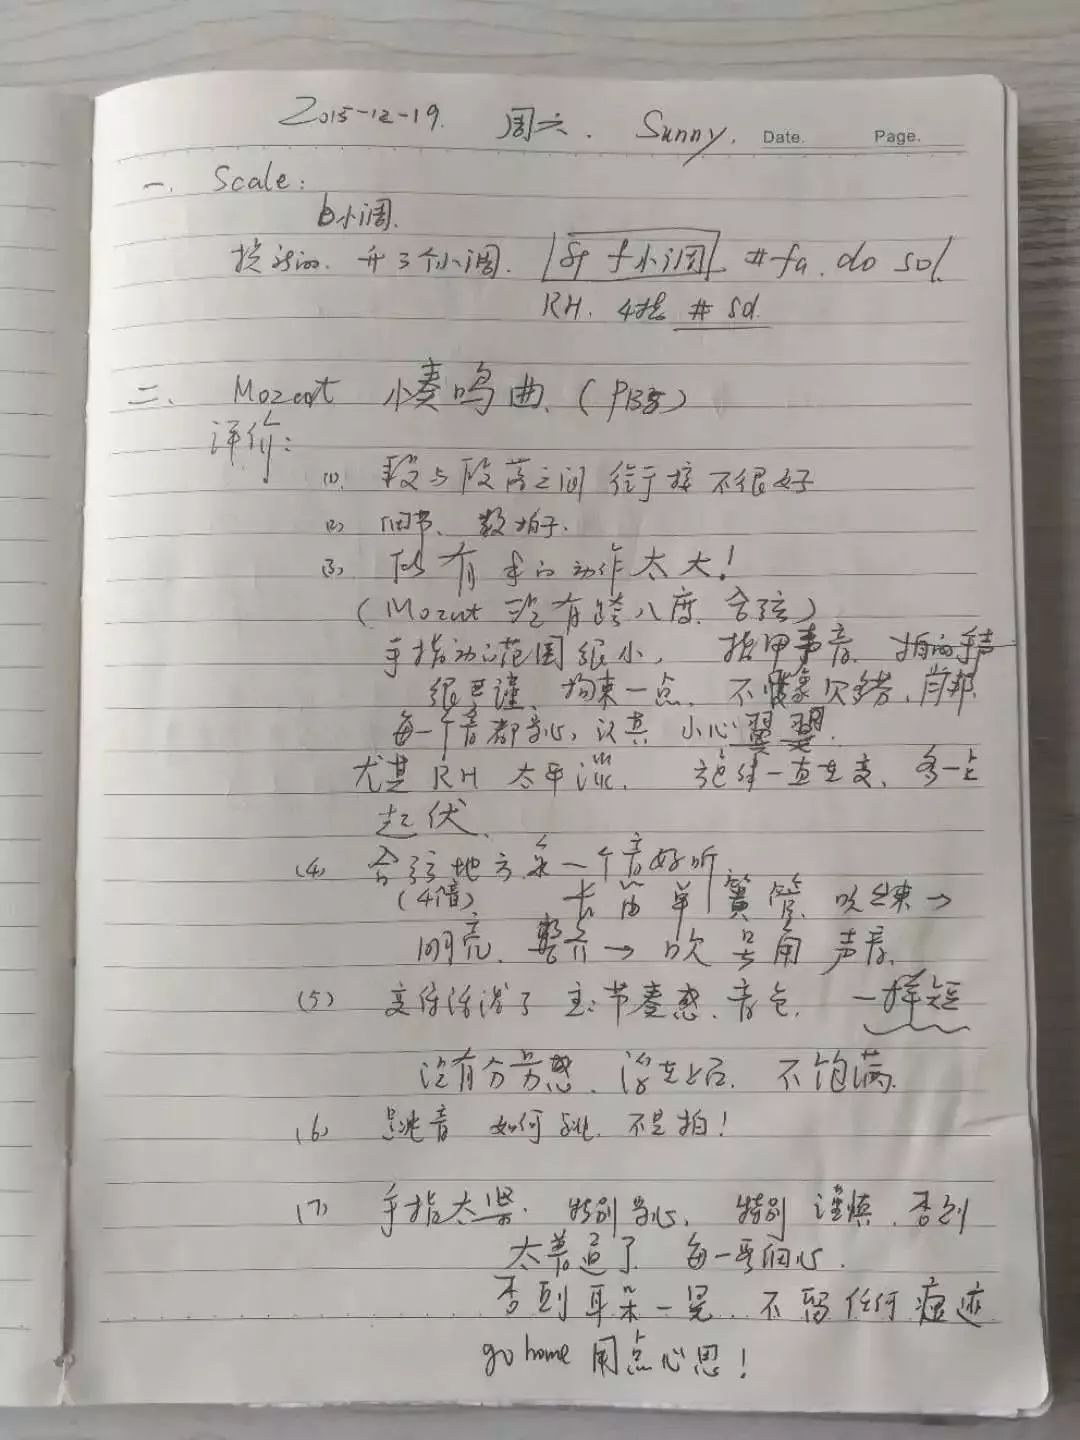 2015-12-19. 周六. Sunny. Date. Page.
一. Scale:
b小调.
换新的. 升3个小调. 升f小调 #fa. do sol
RH. 4指 # sol.
二. Mozart 小奏鸣曲. (P135)
评价:
(1). 段与段落之间衔接不很好
(2) 细节、数拍子.
(3) 所有手的动作太大!
(Mozart 没有跨八度. 合弦)
手指动的范围很小, 指甲声音.
很严谨, 拘束一点. 不像贝多芬、肖邦.
每一个音都专心, 认真 小心翼翼.
尤其RH 太平淡. 旋律一直在变, 多一点
起伏.
(4) 合弦地方. 每一个音好听.
(4倍) 长笛单簧管. 吹结束→
明亮. 整齐→吹号角声音.
(5) 变得活泼了 主: 节奏感. 音色. 一样短
没有分劳感. 不饱满.
(6) 跳音 如何跳. 不是拍!
(7) 手指太紧. 特别专心, 特别谨慎. 否则
太普通了. 每一哥细心.
否则耳朵一晃.. 不留任何痕迹
go home 用点心思!